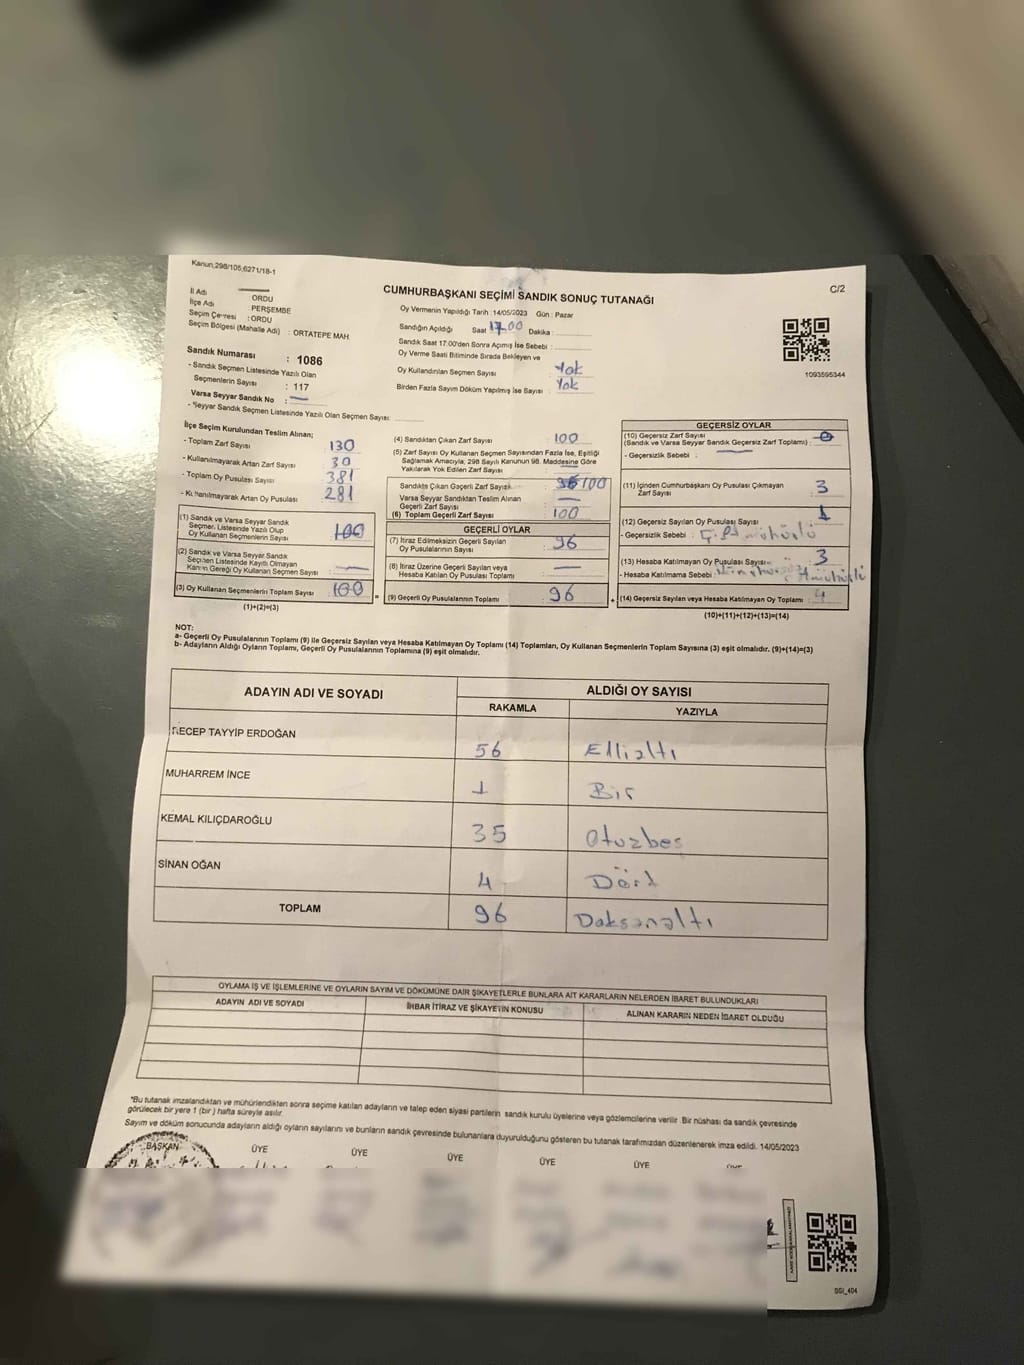 Kanun,298/105,6271/18-1
C/2
CUMHURBAŞKANI SEÇİMİ SANDIK SONUÇ TUTANAĞI
İl Adı : ORDU
İlçe Adı : PERŞEMBE
Seçim Çevresi : ORDU
Seçim Bölgesi (Mahalle Adı) : ORTATEPE MAH.
Sandık Numarası : 1086
- Sandık Seçmen Listesinde Yazılı Olan
Seçmenlerin Sayısı : 117
Varsa Seyyar Sandık No : —
- Seyyar Sandık Seçmen Listesinde Yazılı Olan Seçmen Sayısı:
Oy Vermenin Yapıldığı Tarih :14/05/2023 Gün : Pazar
Sandığın Açıldığı Saat 17.00 Dakika :
Sandık Saat 17:00'den Sonra Açılmış İse Sebebi :
Oy Verme Saati Bitiminde Sırada Bekleyen ve
Oy Kullandırılan Seçmen Sayısı : Yok
Birden Fazla Sayım Döküm Yapılmış İse Sayısı : Yok
1093595344
İlçe Seçim Kurulundan Teslim Alınan;
- Toplam Zarf Sayısı : 130
- Kullanılmayarak Artan Zarf Sayısı : 30
- Toplam Oy Pusulası Sayısı : 381
- Kullanılmayarak Artan Oy Pusulası : 281
(1) Sandık ve Varsa Seyyar Sandık
Seçmen Listesinde Yazılı Olup
Oy Kullanan Seçmenlerin Sayısı : 100
(2) Sandık ve Varsa Seyyar Sandık
Seçmen Listesinde Kayıtlı Olmayan
Kanun Gereği Oy Kullanan Seçmen Sayısı : —
(3) Oy Kullanan Seçmenlerin Toplam Sayısı : 100
(1)+(2)=(3)
(4) Sandıktan Çıkan Zarf Sayısı : 100
(5) Zarf Sayısı Oy Kullanan Seçmen Sayısından Fazla İse, Eşitliği
Sağlamak Amacıyla, 298 Sayılı Kanunun 98. Maddesine Göre
Yakılarak Yok Edilen Zarf Sayısı : —
Sandıkta Çıkan Geçerli Zarf Sayısı : 100
Varsa Seyyar Sandıktan Teslim Alınan
Geçerli Zarf Sayısı : —
(6) Toplam Geçerli Zarf Sayısı : 100
GEÇERLİ OYLAR
(7) İtiraz Edilmeksizin Geçerli Sayılan
Oy Pusulalarının Sayısı : 96
(8) İtiraz Üzerine Geçerli Sayılan veya
Hesaba Katılan Oy Pusulası Toplamı : —
(9) Geçerli Oy Pusulalarının Toplamı : 96
GEÇERSİZ OYLAR
(10) Geçersiz Zarf Sayısı
(Sandık ve Varsa Seyyar Sandık Geçersiz Zarf Toplamı) : 0
- Geçersizlik Sebebi : —
(11) İçinden Cumhurbaşkanı Oy Pusulası Çıkmayan
Zarf Sayısı : 3
(12) Geçersiz Sayılan Oy Pusulası Sayısı : 1
- Geçersizlik Sebebi :
(13) Hesaba Katılmayan Oy Pusulası Sayısı : 3
- Hesaba Katılmama Sebebi :
(14) Geçersiz Sayılan veya Hesaba Katılmayan Oy Toplamı : 4
(10)+(11)+(12)+(13)=(14)
NOT:
a- Geçerli Oy Pusulalarının Toplamı (9) ile Geçersiz Sayılan veya Hesaba Katılmayan Oy Toplamı (14) Toplamları, Oy Kullanan Seçmenlerin Toplam Sayısına (3) eşit olmalıdır. (9)+(14)=(3)
b- Adayların Aldığı Oyların Toplamı, Geçerli Oy Pusulalarının Toplamına (9) eşit olmalıdır.
ADAYIN ADI VE SOYADI
ALDIĞI OY SAYISI
RAKAMLA YAZIYLA
RECEP TAYYİP ERDOĞAN 56 Ellialtı
MUHARREM İNCE 1 Bir
KEMAL KILIÇDAROĞLU 35 Otuzbeş
SİNAN OĞAN 4 Dört
TOPLAM 96 Doksanaltı
OYLAMA İŞ VE İŞLEMLERİNE VE OYLARIN SAYIM VE DÖKÜMÜNE DAİR ŞİKAYETLERLE BUNLARA AİT KARARLARIN NELERDEN İBARET BULUNDUKLARI
ADAYIN ADI VE SOYADI İHBAR İTİRAZ VE ŞİKAYETİN KONUSU ALINAN KARARIN NEDEN İBARET OLDUĞU
*Bu tutanak imzalandıktan ve mühürlendikten sonra seçime katılan adayların ve talep eden siyasi partilerin sandık kurulu üyelerine veya gözlemcilerine verilir. Bir nüshası da sandık çevresinde
görülecek bir yere 1 (bir) hafta süreyle asılır.
Sayım ve döküm sonucunda adayların aldığı oyların sayılarını ve bunların sandık çevresinde bulunanlara duyurulduğunu gösteren bu tutanak tarafımızdan düzenlenerek imza edildi. 14/05/2023
BAŞKAN ÜYE ÜYE ÜYE ÜYE ÜYE
SGI_404